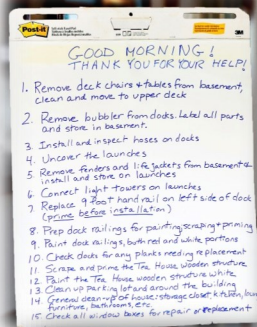 Post-it
3M
GOOD MORNING!
THANK YOU FOR YOUR HELP!
1. Remove deck chairs & tables from basement,
clean and move to upper deck
2. Remove bubbler from docks. Label all parts
and store in basement.
3. Install and inspect hoses on docks
4. Uncover the launches
5. Remove fenders and life jackets from basement &
install and store on launches
6. Connect light towers on launches
7. Replace 9 foot hand rail on left side of dock
(prime before installation)
8. Prep dock railings for painting, scraping & priming
9. Paint dock railings, both red and white portions
10. Check docks for any planks needing replacement
11. Scrape and prime the Tea House wooden structure
12. Paint the Tea House wooden structure white
13. Clean up parking lot and around the building
14. General clean-up of house; storage closet, kitchen, laun
furniture, bathrooms, etc.
15. Check all window boxes for repair or replacement